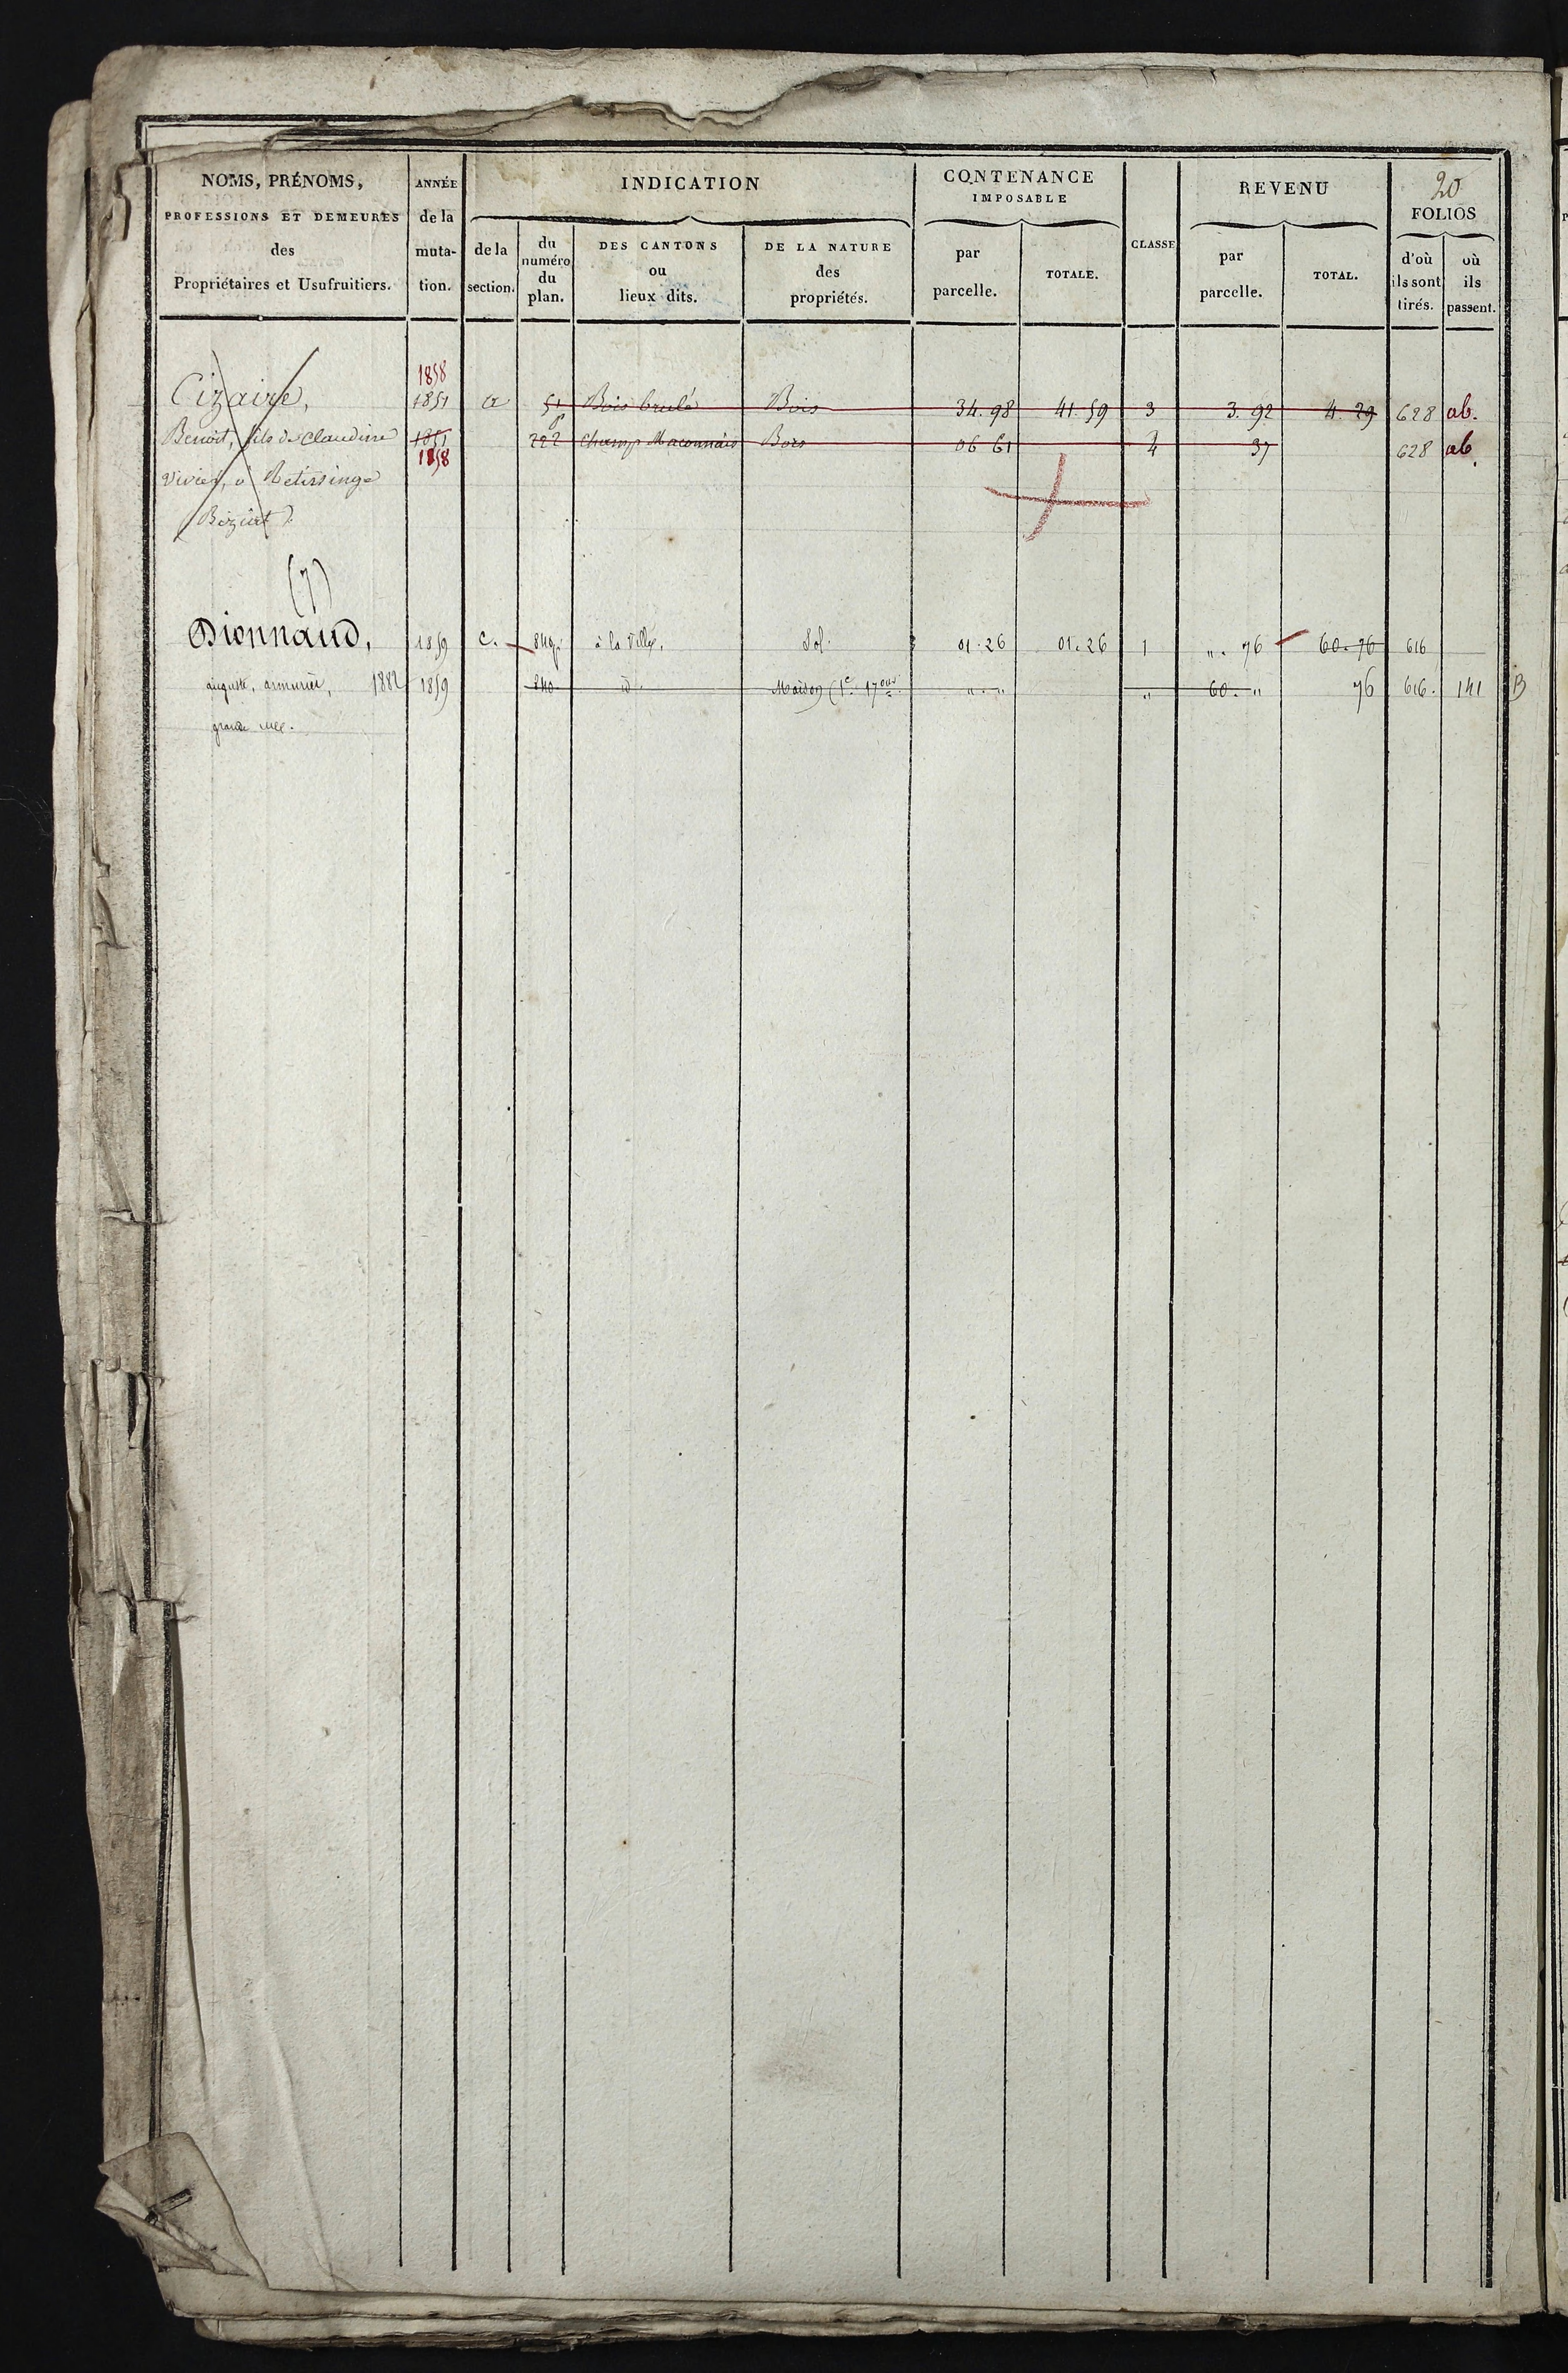 20
NOMS, PRÉNOMS,
PROFESSIONS ET DEMEURES
des
Propriétaires et Usufruitiers.
ANNÉE
de la
muta-
tion.
INDICATION
de la
section.
du
numéro
du
plan.
DES CANTONS
ou
lieux dits.
DE LA NATURE
des
propriétés.
CONTENANCE
IMPOSABLE
par
parcelle.
TOTALE.
CLASSE
REVENU
par
parcelle.
TOTAL.
FOLIOS
d'où
ils sont
tirés.
où
ils
passent.
1858
Cizaire, 1851 a 51 Bois brulé Bois 34.98 41.59 3 3.92 4.29 628 ab.
Benoit, fils de Claudine 1851 222 Champ Maconnais Bois 06 61 4 37 628 ab.
1858
Vivier, à
(7)
Dionnaud, 1859 C. 840p à la Ville. Sol. 01.26 01.26 1 ". 76 60.76 616
auguste, armurier, 1882 1859 840 id. Maison (1e. 17ouv. ". " " 60. " 76 616. 141 B
grande rue.